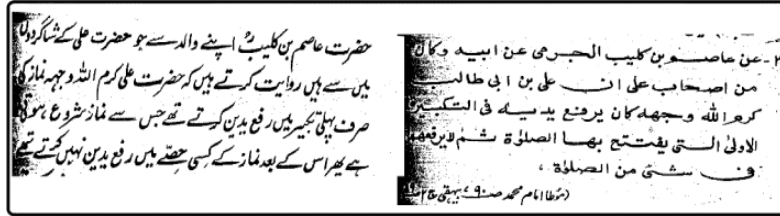 عن عاصم بن كليب الجرمى عن ابيه وكان
من اصحاب على ان على بن ابى طالب
كرم الله وجهه كان يرفع يديه فى التكبيرة
الاولىٰ التى يفتتح بها الصلوٰة ثم لا يرفعهما
فى شئ من الصلوٰة ،
(مؤطا امام محمد صـ۹۰، بیہقی
حضرت عاصم بن کلیبؒ اپنے والد سے جو حضرت علی کے شاگردوں
میں سے ہیں روایت کرتے ہیں کہ حضرت علی کرم اللہ وجہہ نماز کی
صرف پہلی تکبیر میں رفع یدین کرتے تھے جس سے نماز شروع ہوتی
ہے پھر اس کے بعد نماز کے کسی حصے میں رفع یدین نہیں کرتے تھے